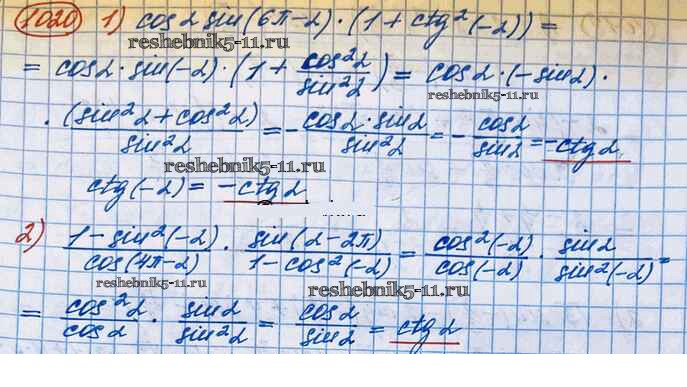 1020 1) cos α sin(6π-α)·(1+ctg²(-α)) =
reshebnik5-11.ru
= cos α · sin(-α) · (1 + cos²α/sin²α) = cos α · (-sin α) ·
reshebnik5-11.ru
· (sin²α + cos²α)/sin²α = - cos α · sin α/sin²α = - cos α/sin α = -ctg α
reshebnik5-11.ru
ctg(-α) = -ctg α
2) 1-sin²(-α)/cos(4π-α) · sin(α-2π)/1-cos²(-α) = cos²(-α)/cos(-α) · sin α/sin²(-α) =
reshebnik5-11.ru
reshebnik5-11.ru
= cos²α/cos α · sin α/sin²α = cos α/sin α = ctg α